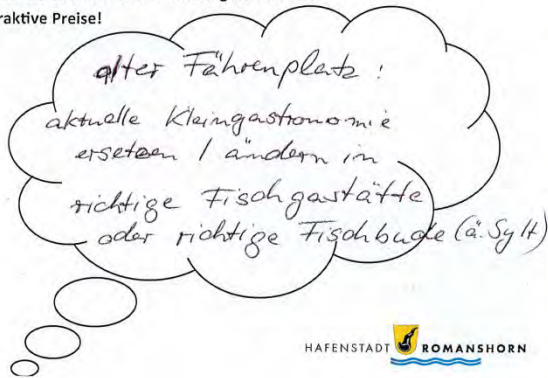 raktive Preise!
alter Fährenplatz :
aktuelle Kleingastronomie
ersetzen / ändern in
richtige Fischgaststätte
oder richtige Fischbude (ä. Sylt)
HAFENSTADT ROMANSHORN